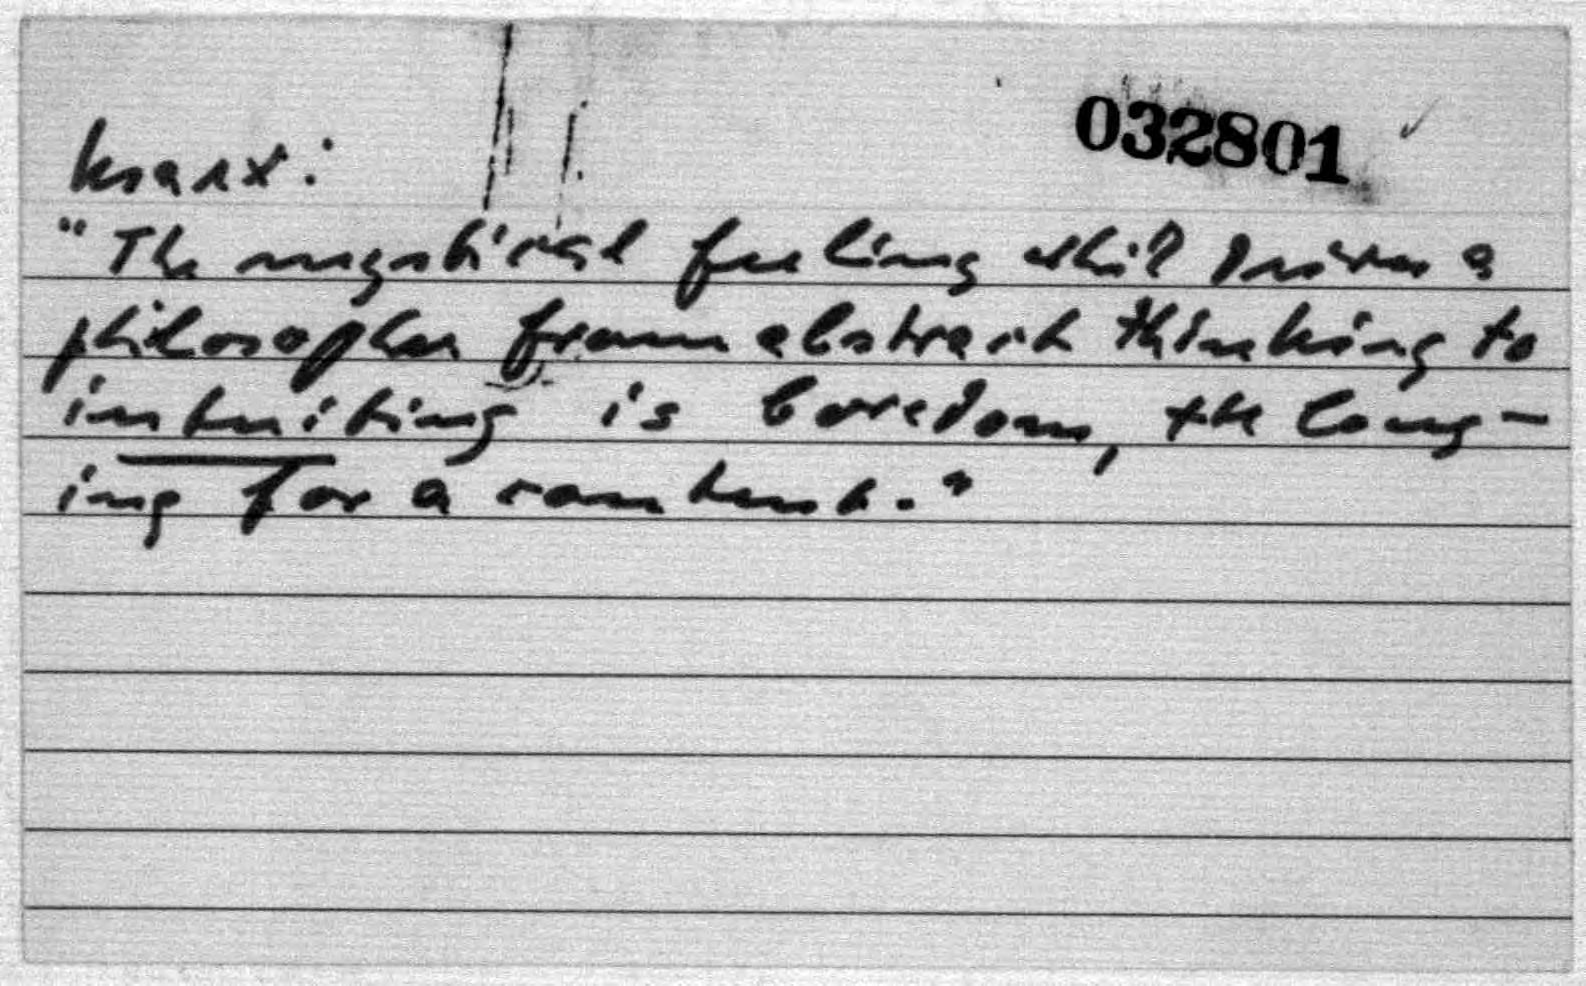 032801
Marx:
"The mystical feeling which drives a
philosopher from abstract thinking to
intuiting is boredom, the long-
ing for a content."